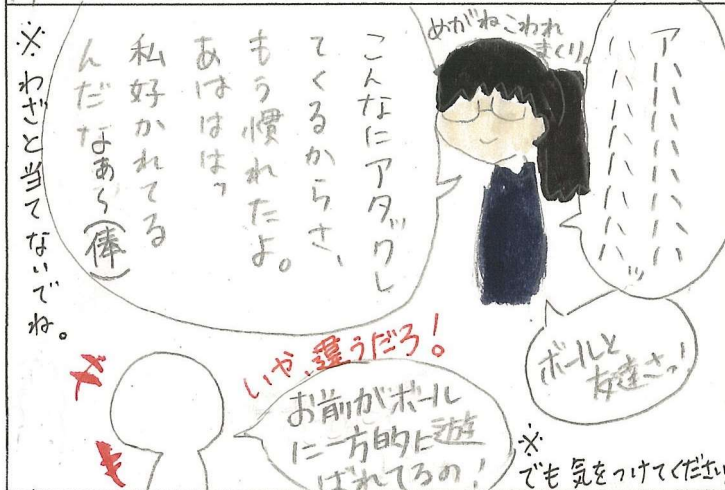 アハハハハハハハ
ハハハハハハハッ
めがねこわれ
まくり。
こんなにアタックし
てくるからさ、
もう慣れたよ。
あははは。
私好かれてる
んだなぁ〜(俸)
※わざと当てないでね。
ボールと
友達さっ!
いや、違うだろ!
お前がボール
に一方的に遊
ばれてるの!
※
でも気をつけてください